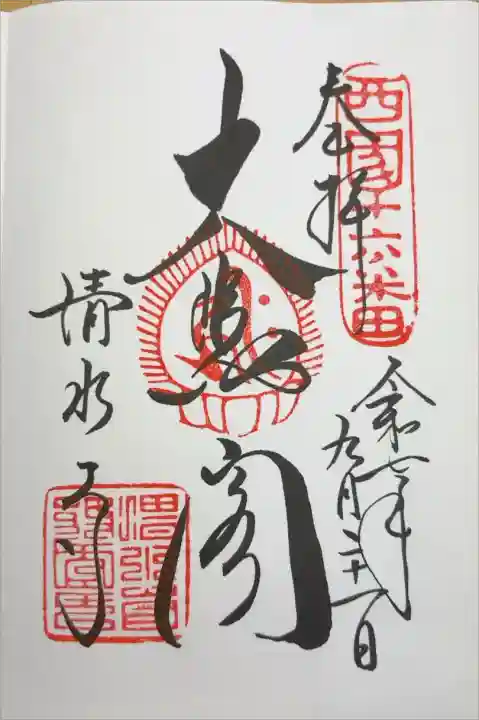 西國十六番
奉拝
令和七年
九月二十一日
大悲閣
清水寺